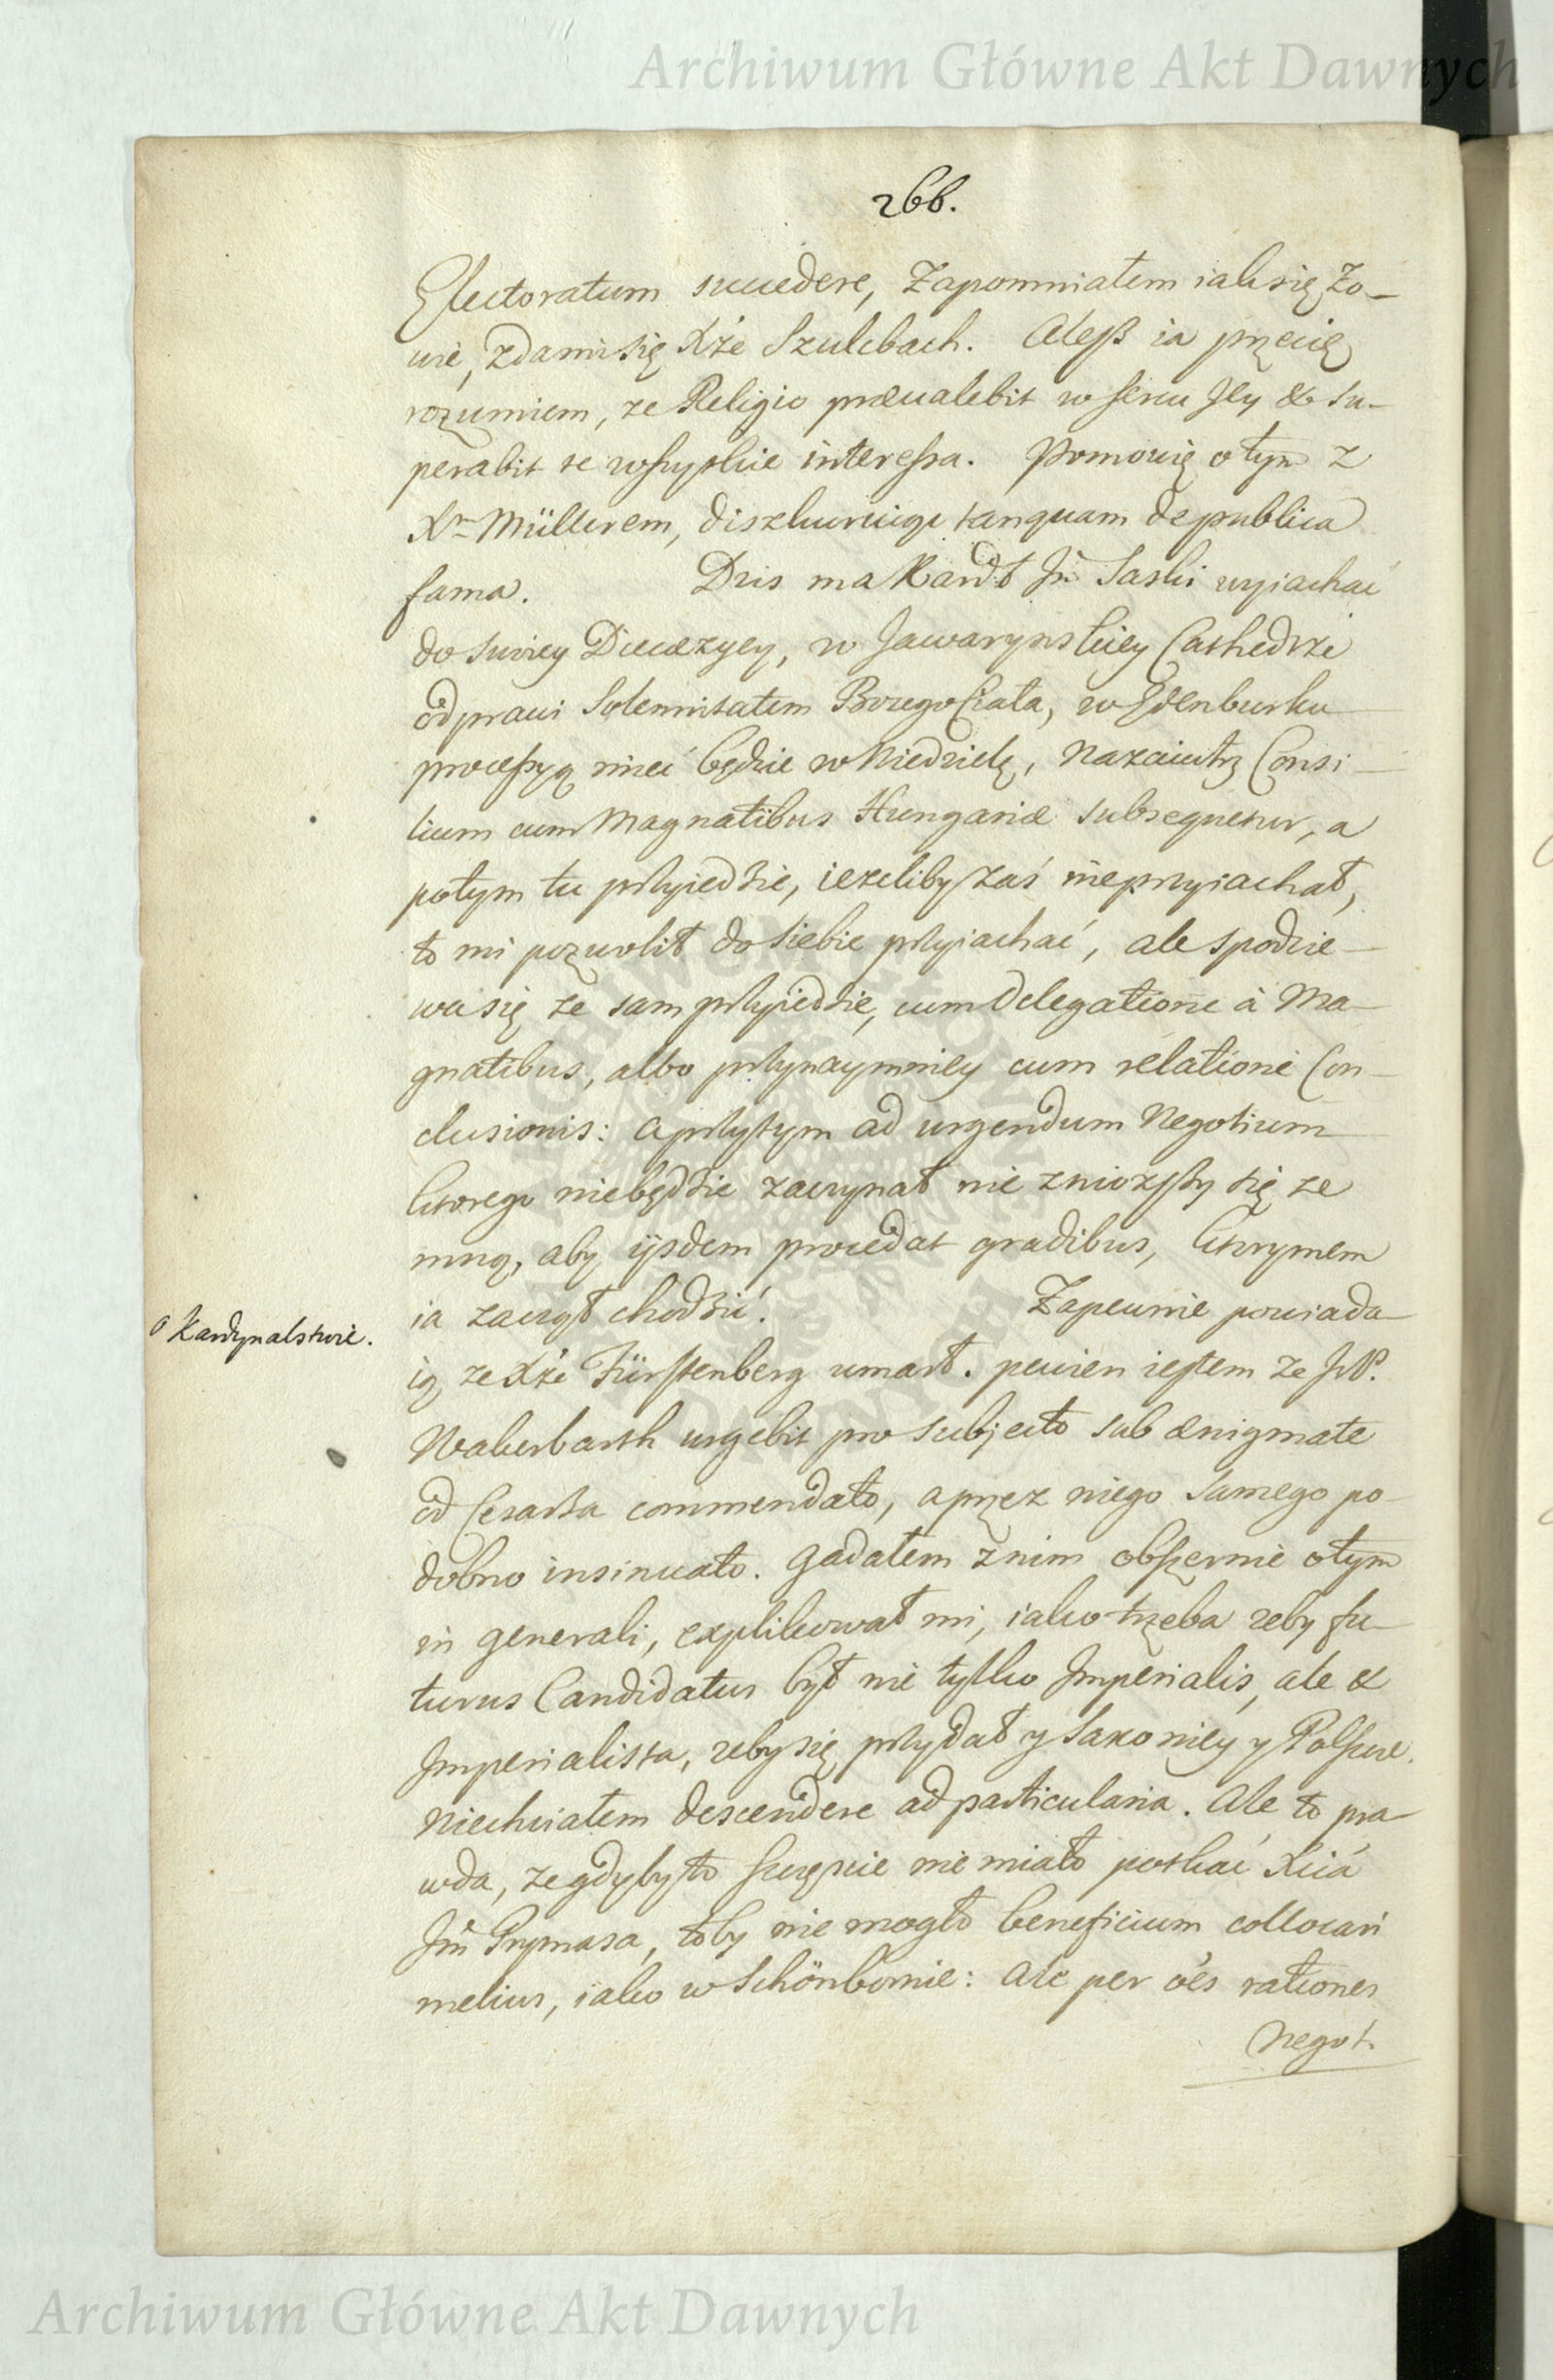 Archiwum Główne Akt Dawnych
266.
Electoratum succedere, Zapomniałem iak się Zo-
wie, zdami się Xże Szulcbach. Aleß ia przecię
rozumiem, ze Religio prævalebit w sercu Jey & su-
perabit te wszystkie interessa. Pomowię o tym z
Xm Müllerem, diszkuruiąc tanquam de publica
fama. Dzis ma Kardł Jm Saski wyiachać
do swoiey Diecezyey, w Jawarynskiey Cathedrze
odprawi Solemnitatem Bozego Ciała, w Edenburku
processyą mieć będzie w Niedzielę, Nazaiutrz Consi-
lium cum Magnatibus Hungariæ subsequetur, a
potym tu przyiedzie, iezeliby zaś nieprzyiachał,
to mi pozwolił do siebie przyiachać, ale spodzie-
wa się ze sam przyiedzie, cum Delegatione à Ma-
gnatibus, albo przynaymniey cum relatione Con-
clusionis: a przytym ad urgendum Negotium
ktorego niebędzie zaczynał nie zniozszy się ze
mną, aby ijsdem procedat gradibus, ktorymem
ia zaczął chodzić. Zapewnie powiada-
o Kardynalstwie.
ią ze Xże Fürstenberg umarł. pewien iestem ze JP.
Wakerbarth urgebit pro subjecto sub ænigmate
od Cesarza commendato, a przez niego samego po-
dobno insinuato. Gadałem z nim obszernie o tym
in generali, explikował mi, iako trzeba zeby fu-
turus Candidatus był nie tylko Imperialis, ale &
Imperialista, zeby się przydał y Saxoniey y Polszcze.
Niechciałem descendere ad particularia. Ale to pra-
wda, ze gdyby to szczęscie nie miało potkać Xcia
Jm Prymasa, toby nie mogło beneficium collocari
melius, iako w Schönbornie: Ale per oes rationes
Negot.
Archiwum Główne Akt Dawnych